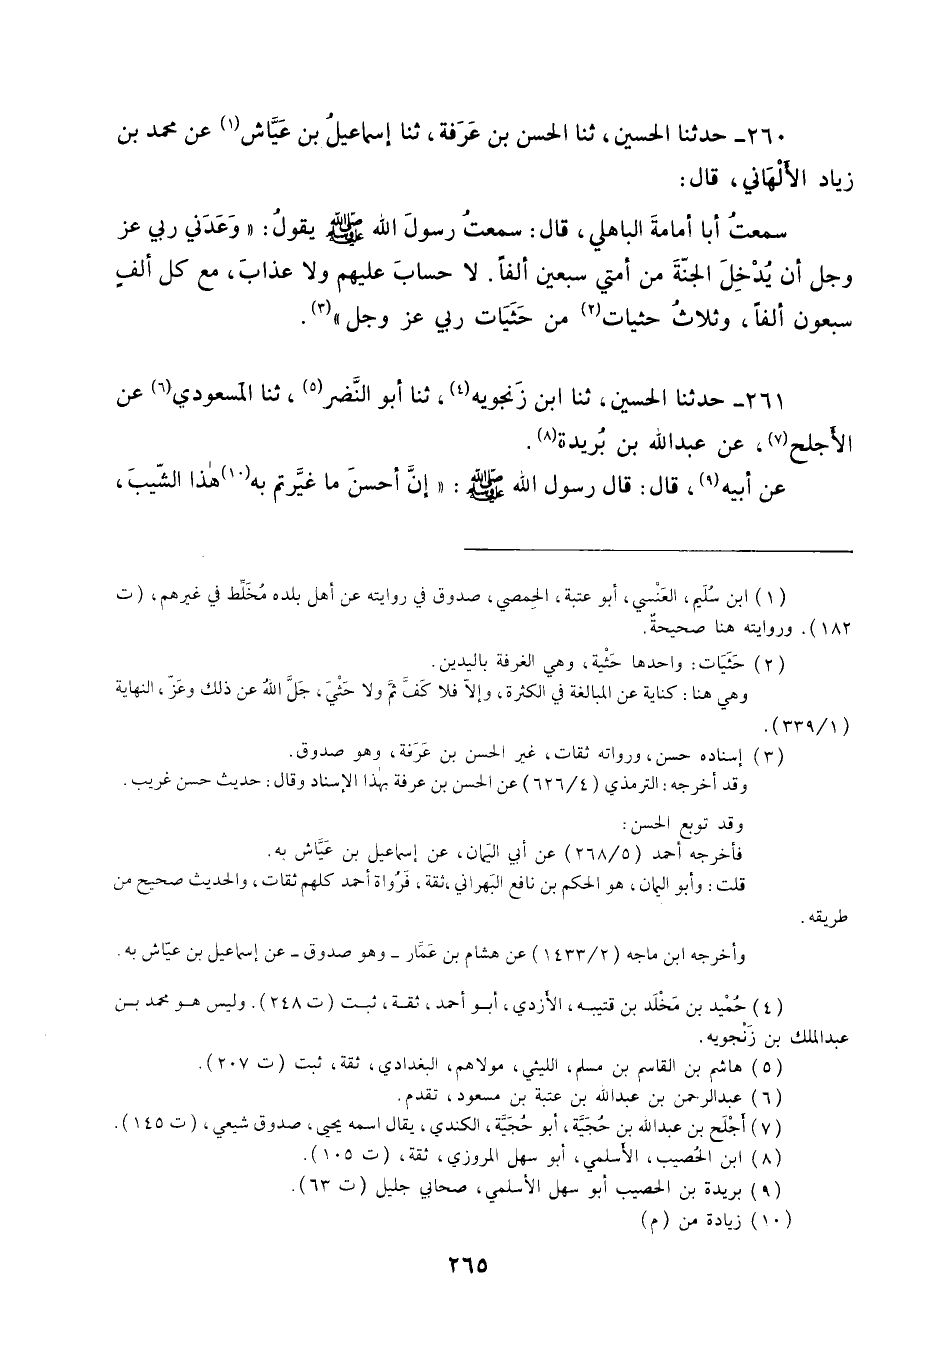 ٢٦٠ـ حدثنا الحسين، ثنا الحسن بن عَرَفة، ثنا إسماعيلُ بن عَيَّاش(١) عن محمد بن
زياد الأَلْهَاني، قال:
سمعتُ أبا أمامةَ الباهلي، قال: سمعتُ رسولَ الله ﷺ يقولُ: «وَعَدَني ربي عز
وجل أن يُدْخِلَ الجنّةَ من أمتي سبعين ألفاً. لا حسابَ عليهم ولا عذابَ، مع كل ألفٍ
سبعون ألفاً، وثلاثُ حثيات(٢) من حَثَيَات ربي عز وجل»(٣).
٢٦١ـ حدثنا الحسين، ثنا ابن زَنجويه(٤)، ثنا أبو النَّضر(٥)، ثنا المسعودي(٦) عن
الأَجلح(٧)، عن عبدالله بن بُريدة(٨).
عن أبيه(٩)، قال: قال رسول الله ﷺ: «إنَّ أحسنَ ما غيَّرتم به(١٠) هٰذا الشّيبَ،
(١) ابن سُلَيم، العَنْسي، أبو عتبة، الحِمصي، صدوق في روايته عن أهل بلده مُخَلِّط في غيرهم، (ت
١٨٢). وروايته هنا صحيحةٌ.
(٢) حَثَيَات: واحدها حَثْية، وهي الغرفة باليدين.
وهي هنا: كناية عن المبالغة في الكثرة، وإلاّ فلا كَفَّ ثمَّ ولا حَثْيَ، جَلَّ اللهُ عن ذلك وعَزّ، النهاية
(٣٣٩/١).
(٣) إسناده حسن، ورواته ثقات، غير الحسن بن عَرَفة، وهو صدوق.
وقد أخرجه: الترمذي (٦٢٦/٤) عن الحسن بن عرفة بهٰذا الإسناد وقال: حديث حسن غريب.
وقد توبع الحسن:
فأخرجه أحمد (٢٦٨/٥) عن أبي اليَمان، عن إسماعيل بن عَيَّاش به.
قلت: وأبو اليمان، هو الحكم بن نافع البَهراني، ثقة، فَرُواة أحمد كلهم ثقات، والحديث صحيح من
طريقه.
وأخرجه ابن ماجه (١٤٣٣/٢) عن هشام بن عَمَّار ـ وهو صدوق ـ عن إسماعيل بن عيّاش به.
(٤) حُمْيد بن مَخْلَد بن قتيبه، الأزدي، أبو أحمد، ثقة، ثبت (ت ٢٤٨). وليس هو محمد بن
عبدالملك بن زَنْجويه.
(٥) هاشم بن القاسم بن مسلم، الليثي، مولاهم، البغدادي، ثقة، ثبت (ت ٢٠٧).
(٦) عبدالرحمن بن عبدالله بن عتبة بن مسعود، تقدم.
(٧) أَجْلَح بن عبدالله بن حُجَيَّة، أبو حُجَيَّة، الكندي، يقال اسمه يحيى، صدوق شيعي، (ت ١٤٥).
(٨) ابن الحُصيب، الأسلمي، أبو سهل المروزي، ثقة، (ت ١٠٥).
(٩) بريدة بن الحصيب أبو سهل الأسلمي، صحابي جليل (ت ٦٣).
(١٠) زيادة من (م)
٢٦٥